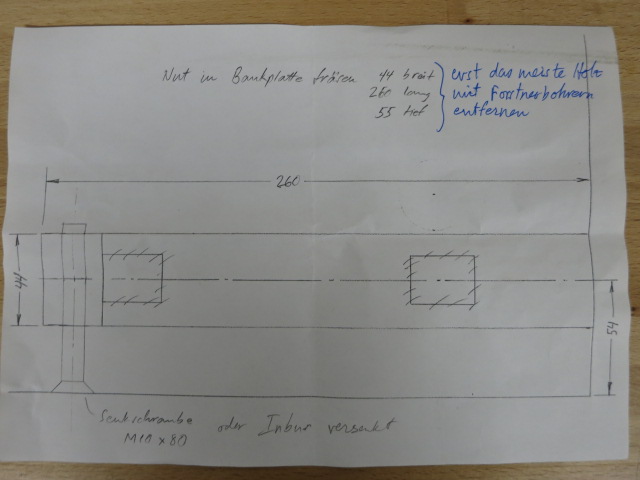 Nut in Bankplatte fräsen 44 breit
260 lang
55 tief
erst das meiste Holz
mit Forstnerbohrern
entfernen
260
44
54
Senkschraube oder Inbus versenkt
M10 x 80